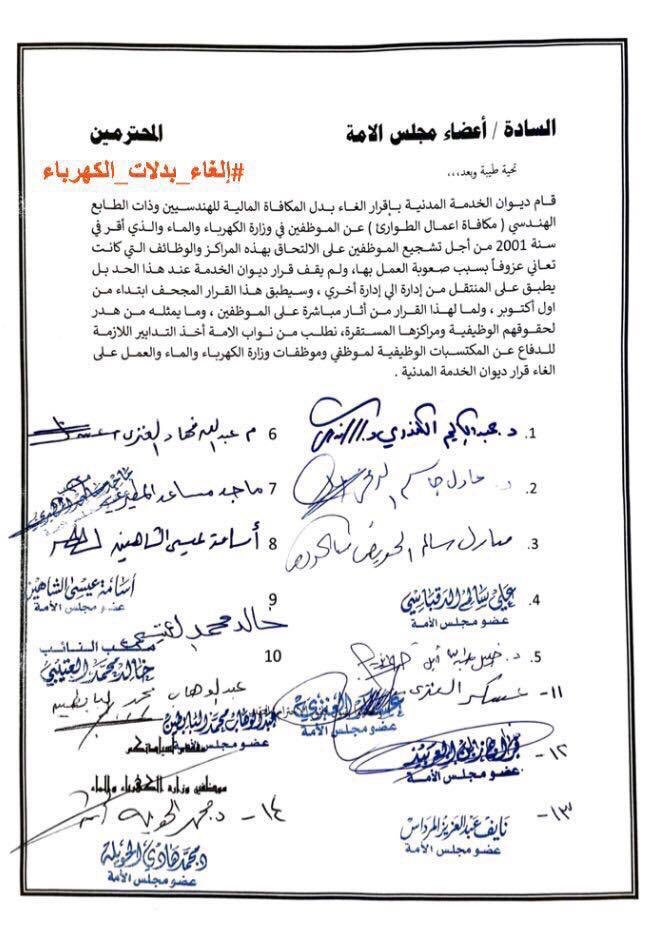 السادة / أعضاء مجلس الامة المحترمين
تحية طيبة وبعد،،،
#إلغاء_بدلات_الكهرباء
قام ديوان الخدمة المدنية بإقرار الغاء بدل المكافاة المالية للهندسيين وذات الطابع
الهندسي ( مكافاة اعمال الطوارئ ) عن الموظفين في وزارة الكهرباء والماء والذي أقر في
سنة 2001 من أجل تشجيع الموظفين على الالتحاق بهذه المراكز والوظائف التي كانت
تعاني عزوفاً بسبب صعوبة العمل بها، ولم يقف قرار ديوان الخدمة عند هذا الحد بل
يطبق على المنتقل من إدارة الي إدارة أخري ، وسيطبق هذا القرار المجحف ابتداء من
اول أكتوبر ، ولما لهذا القرار من أثار مباشرة على الموظفين ، وما يمثله من هدر
لحقوقهم الوظيفية ومراكزها المستقرة، نطلب من نواب الامة أخذ التدابير اللازمة
للدفاع عن المكتسبات الوظيفية لموظفي وموظفات وزارة الكهرباء والماء والعمل على
الغاء قرار ديوان الخدمة المدنية .
1. د. عبدالكريم الكندري
2. د. عادل جاسم
3. مبارك سالم الحريص
4. علي سالم الدقباسي
عضو مجلس الأمة
5. د.
6 م عبدالله فهاد العنزي
7 ماجد مساعد المطيري
8 أسامة عيسى الشاهين
أسامة عيسى الشاهين
عضو مجلس الأمة
9 خالد محمد العتيبي
مكتب النائب
خالد محمد العتيبي
عضو مجلس الأمة
10 عبدالوهاب محمد البابطين
عبدالوهاب محمد البابطين
عضو مجلس الأمة
١١- عسكر العنزي
عسكر العنزي
عضو مجلس الأمة
١٢-
عضو مجلس الأمة
موظفين وزارة الكهرباء والماء
١٣-
نايف عبدالعزيز المرداس
عضو مجلس الأمة
١٤- د. محمد الحويلة
د. محمد هادي الحويلة
عضو مجلس الأمة